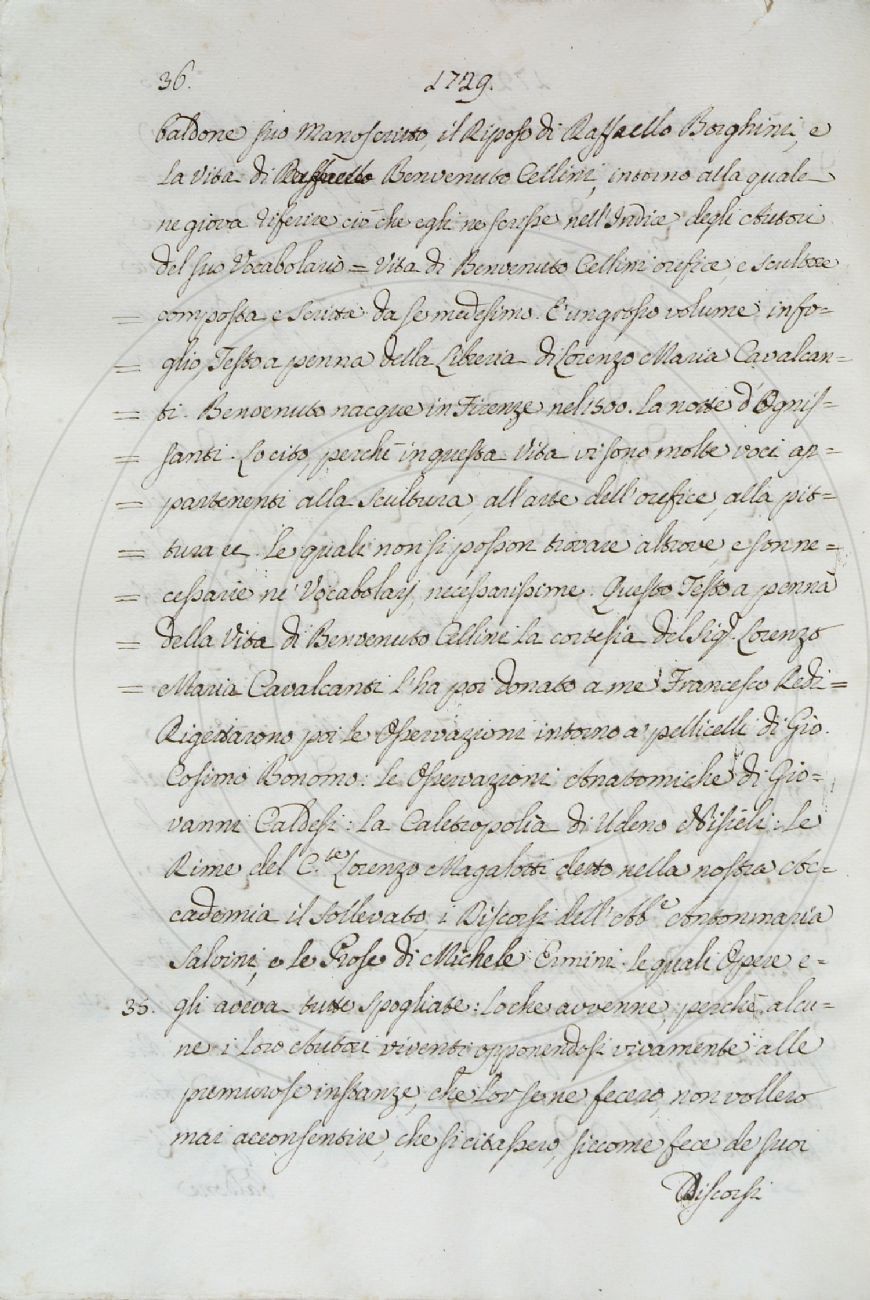 36. 1729.
baldone suo Manoscritto, il Riposo di Raffaello Borghini, e
la Vita di Raffaello Benvenuto Cellini, intorno alla quale
ne giova riferire ciò che egli ne scrisse nell'Indice degli Autori
del suo Vocabolario = Vita di Benvenuto Cellini orefice, e scultore
= composta e scritta da se medesimo. E' un grosso volume in fo-
= glio, Testo a penna della Libreria di Lorenzo Maria Cavalcan-
= ti. Benvenuto nacque in Firenze nel 1500. la notte d'Ognis-
= santi. Lo cito, perchè in questa Vita vi sono molte voci ap-
= partenenti alla scultura, all'arte dell'orefice, alla pit-
= tura ec. le quali non si posson trovare altrove, e son ne-
= cessarie ne' Vocabolarj, necessarissime. Questo Testo a penna
= della Vita di Benvenuto Cellini la cortesia del Sig.r Lorenzo
= Maria Cavalcanti l'ha poi donato a me Francesco Redi =
Rigettarono poi le Osservazioni intorno a' pellicelli di Gio.
Cosimo Bonomo: le Osservazioni Anatomiche di Gio-
vanni Caldesi: la Caletropolìa di Udeno Nisieli: Le
Rime del C.te Lorenzo Magalotti detto nella nostra Ac-
cademia il Sollevato, i Discorsi dell'Ab.e Antonmaria
Salvini, e le Prose di Michele Ermini. le quali Opere e-
35. gli aveva tutte spogliate: lo che avvenne, perchè alcu-
ne i loro Autori viventi opponendosi vivamente alle
premurose instanze, che lor se ne fecero, non vollero
mai acconsentire, che si citassero, siccome fece de' suoi
Discorsi